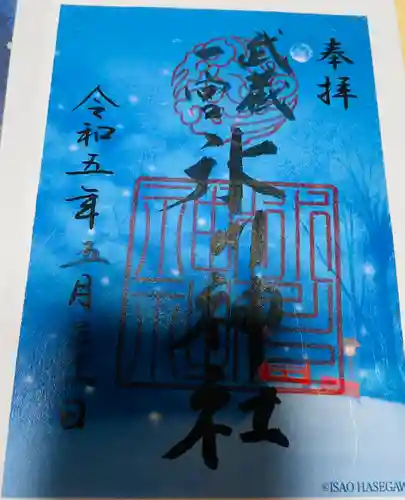 奉拝
武蔵
一宮
氷川神社
令和五年五月二十日
©ISAO HASEGAW